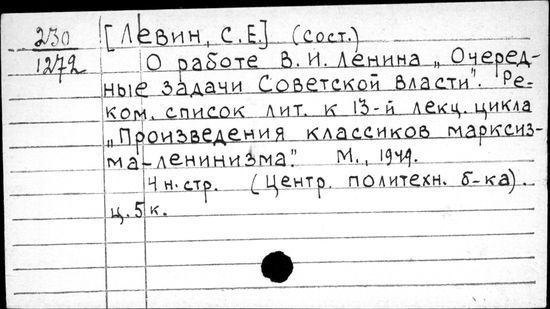 230
1272
[Левин, С.Е.] (сост.)
О работе В.И. Ленина „Очеред-
ные задачи Советской власти". Ре-
ком. список лит. к 13-й лекц. цикла
„Произведения классиков марксиз-
ма-ленинизма". М., 1949.
4 н. стр. (Центр. политехн. б-ка).
ц. 5 к.